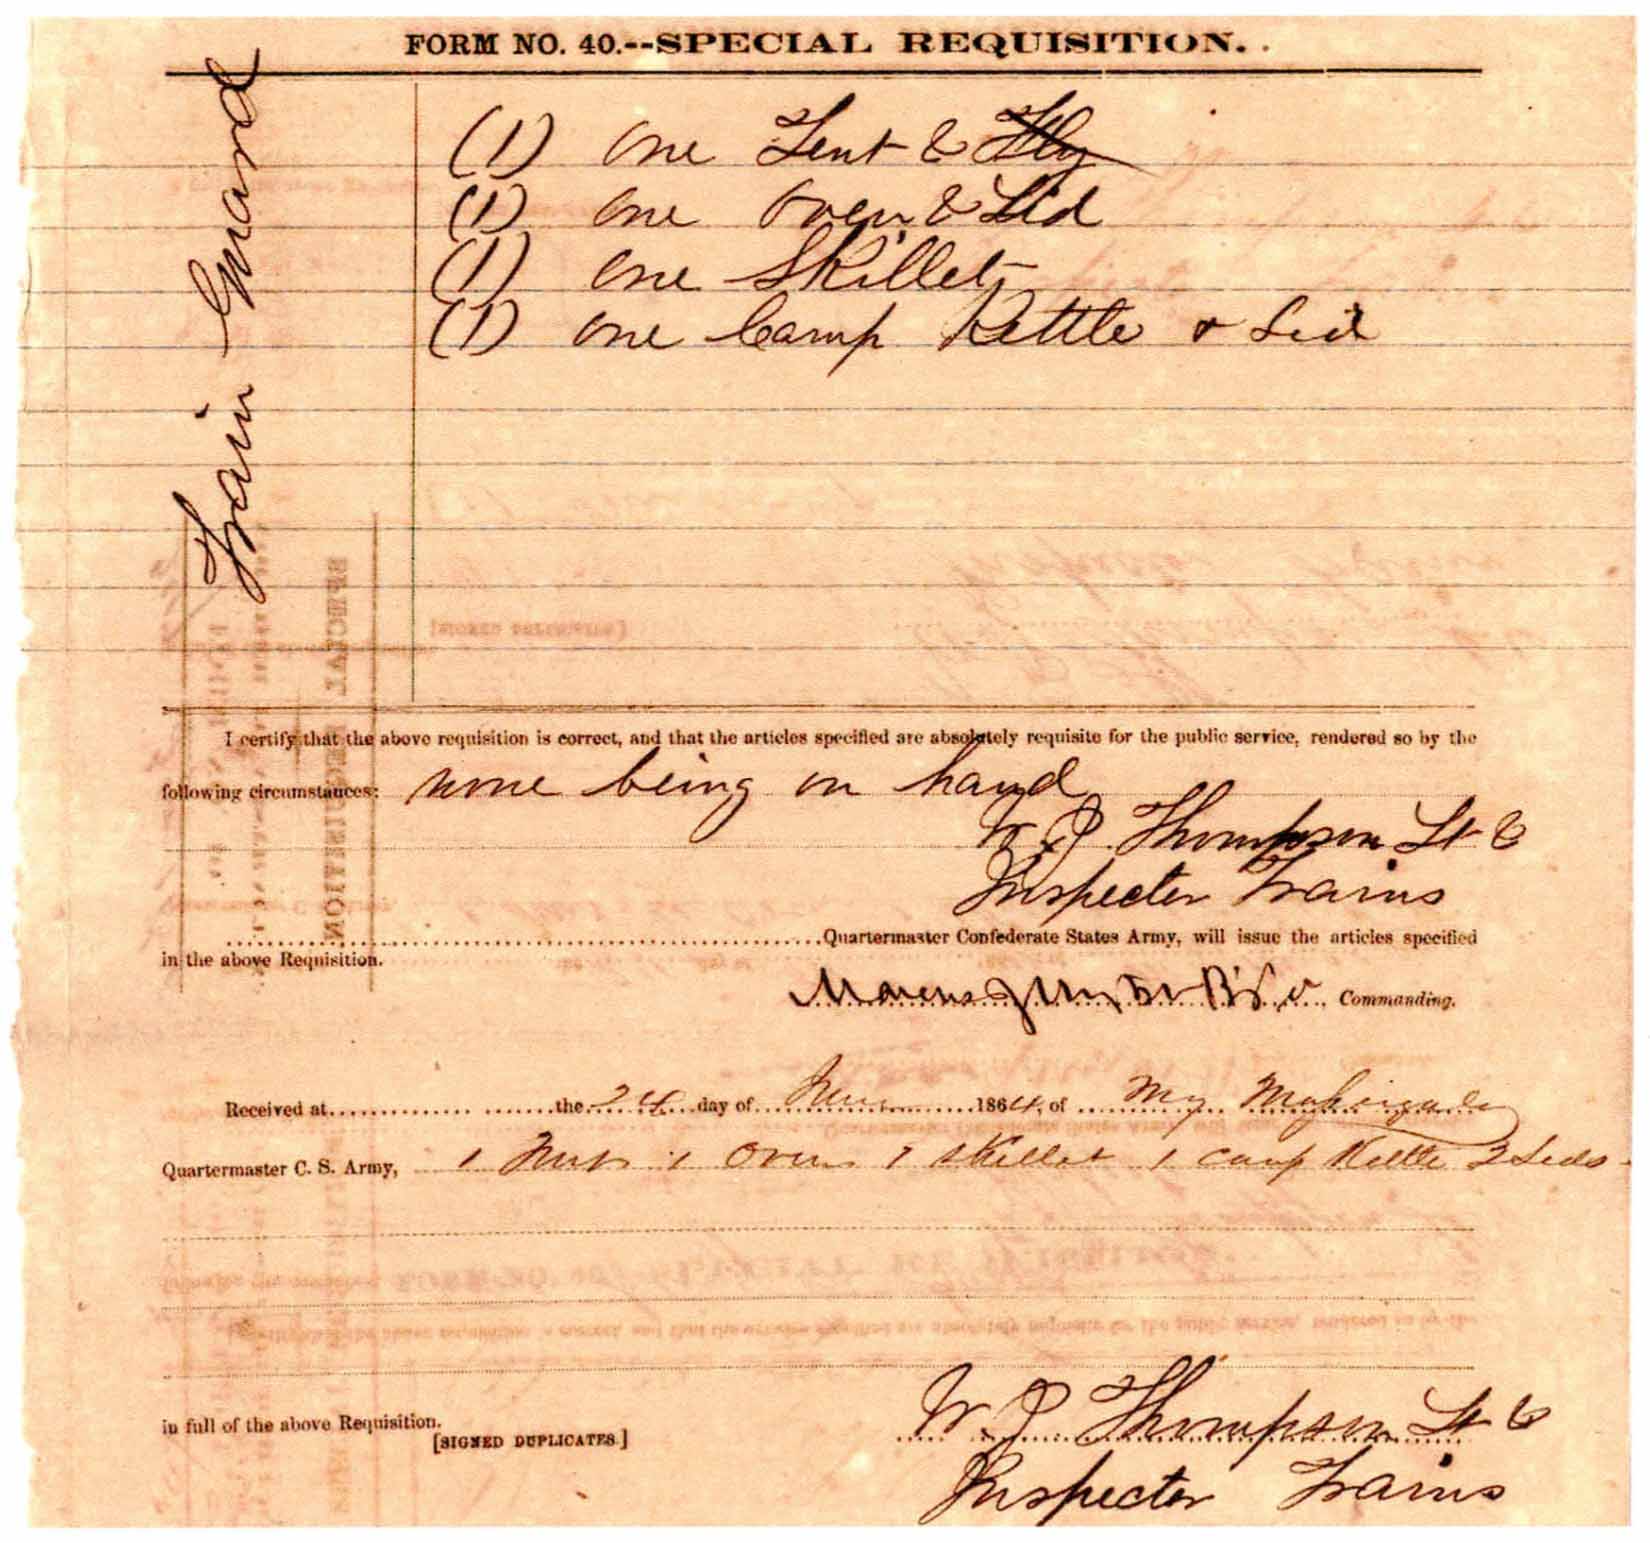 FORM NO. 40.--SPECIAL REQUISITION.
Train Guard
(1) one Tent & Fly
(1) one Oven & Lid
(1) one Skillet
(1) one Camp Kettle & Lid
I certify that the above requisition is correct, and that the articles specified are absolutely requisite for the public service, rendered so by the
following circumstances: none being on hand
W J Thompson Lt &
Inspector Trains
Quartermaster Confederate States Army, will issue the articles specified
in the above Requisition.
Commanding.
Received at the 24 day of 1864, of My
Quartermaster C. S. Army, 1 Tent 1 Oven 1 Skillet 1 camp Kettle 2 Lids
in full of the above Requisition.
[SIGNED DUPLICATES.]
W J Thompson Lt &
Inspector Trains
SPECIAL REQUISITION